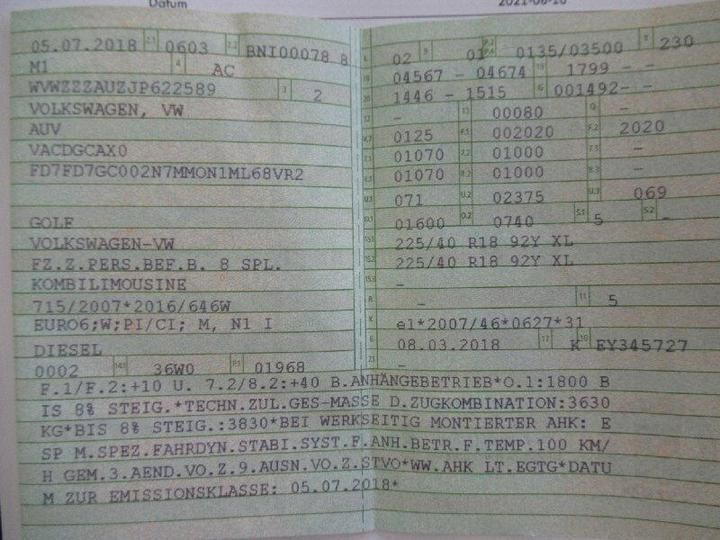 Datum
2021-08-10
05.07.2018 2.1 0603 2.2 BNI00078 8
M1 4 AC
WVWZZZAUZJP622589 3 2
VOLKSWAGEN, VW
AUV
VACDGCAX0
FD7FD7GC002N7MMON1ML68VR2
GOLF
VOLKSWAGEN-VW
FZ.Z.PERS.BEF.B. 8 SPL.
KOMBILIMOUSINE
715/2007*2016/646W
EURO6;W;PI/CI; M, N1 I
DIESEL
0002 14.1 36W0 P.1 01968
02 9 01 P.2 P.4 0135/03500 T 230
04567 - 04674 19 1799 - -
1446 - 1515 G 001492- -
- 13 00080 Q -
0125 F.1 002020 F.2 2020
01070 7.2 01000 7.3 -
01070 8.2 01000 8.3 -
071 U.2 02375 U.3 069
01600 O.2 0740 S.1 5 S.2 -
225/40 R18 92Y XL
225/40 R18 92Y XL
-
R - 11 5
K e1*2007/46*0627*31
6 08.03.2018 17 K 16 EY345727
21 -
F.1/F.2:+10 U. 7.2/8.2:+40 B.ANHÄNGEBETRIEB*O.1:1800 B
IS 8% STEIG.*TECHN.ZUL.GES-MASSE D.ZUGKOMBINATION:3630
KG*BIS 8% STEIG.:3830*BEI WERKSEITIG MONTIERTER AHK: E
SP M.SPEZ.FAHRDYN.STABI.SYST.F.ANH.BETR.F.TEMP.100 KM/
H GEM.3.AEND.VO.Z.9.AUSN.VO.Z.STVO*WW.AHK LT.EGTG*DATU
M ZUR EMISSIONSKLASSE: 05.07.2018*